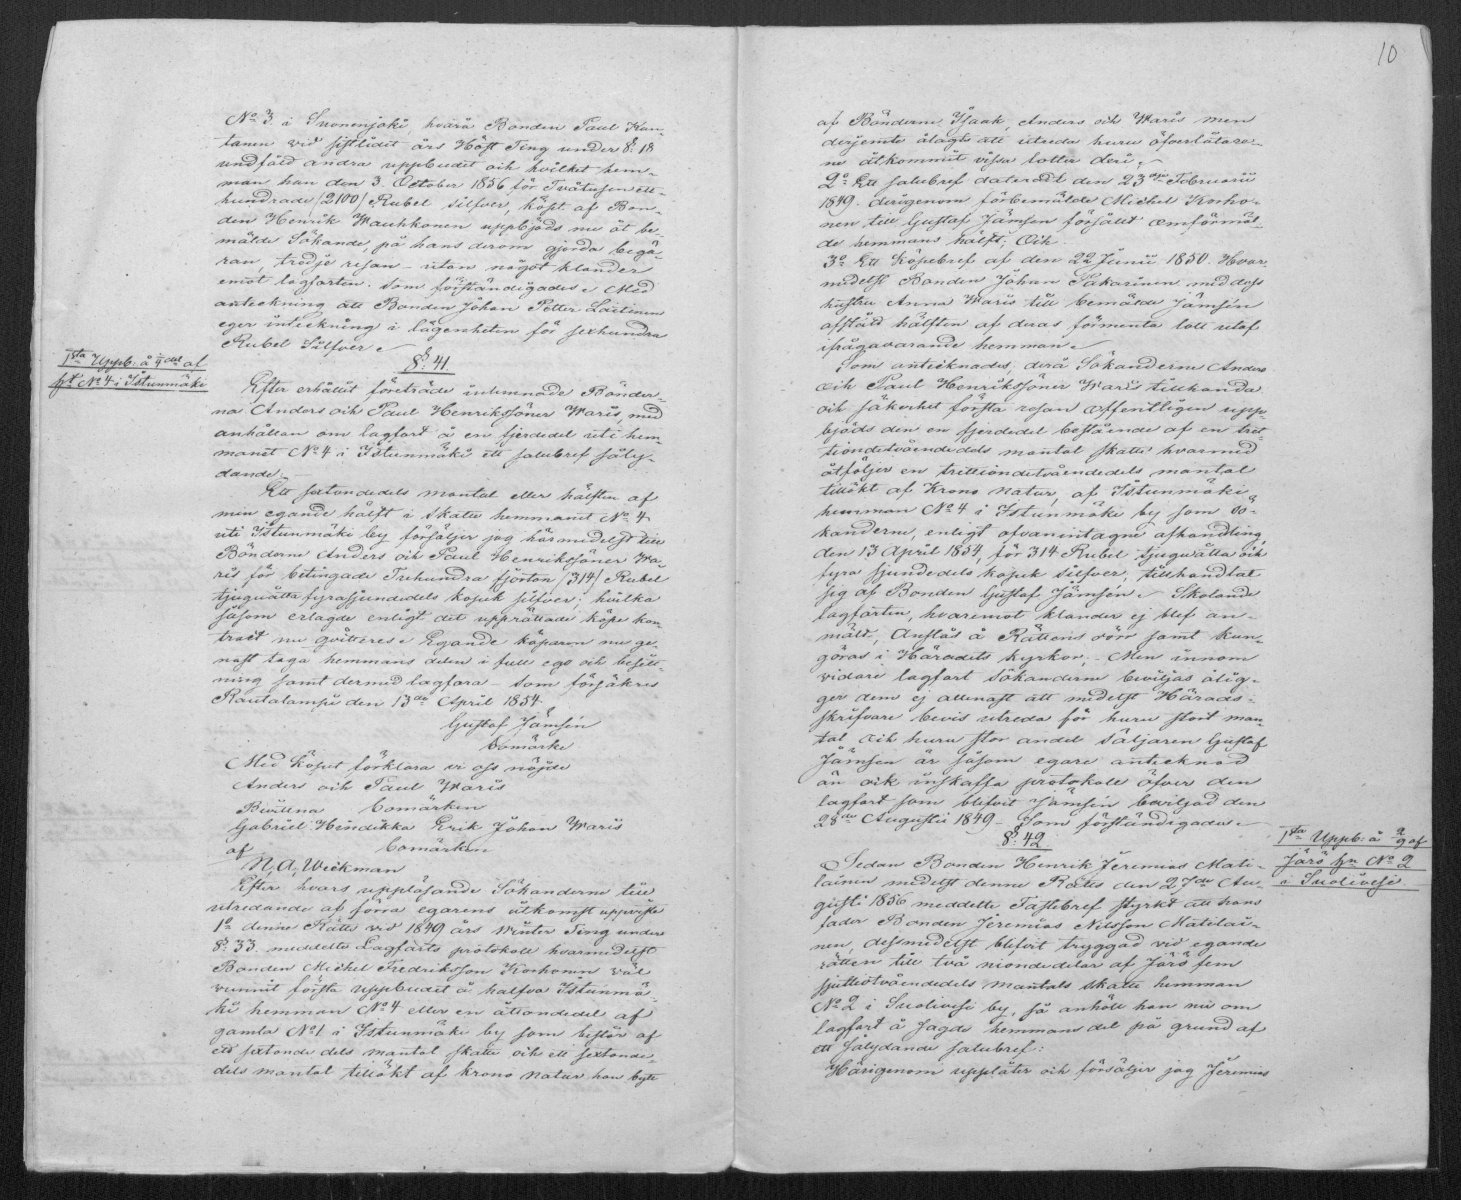 No 3 i Suonenjoki, hvara Bonden Paul Kan-
tanen vid sistlidet års Höst Ting under §: 18
undfåld andra uppbudet och hvilket hem-
man han den 3. October 1856 för Tvåtusen ett-
hundrade (2100) Rubel silfver, köpt af Bon-
den Henrik Hauhkonen uppbjöds nu åt be-
mälde Sökande, på hans derom gjorda begä-
ran, tredje resan - utan något klander
emot lagfarten. Som förständigades Med
anteckning att Bonden Johan Petter Laitinen
eger inteckning i lägenheten för sexhundra
Rubel Silfver
1sta Uppb: å ¼ del af
hn No 4 i Istunmäki
§: 41.
Efter erhållit företräde inlemnade Bönder-
na Anders och Paul Henrikssöner Waris, med
anhållan om lagfart å en fjerdedel uti hem-
manet No 4 i Istunmäki ett salubref såly-
dande. -
Ett sextondedels mantal eller hälften af
min egande hälft i skatte hemmanet No 4
uti Istunmäki by försäljer jag härmedelst till
Bönderne Anders och Paul Henrikssöner Wa-
ris för betingade Trehundra fjorton (314) Rubel
tjuguåtta fyrasjundedels kopek silfver; hvilka
såsom erlagde enligt det upprättade köpe kon-
tract nu qvitteres Egande köparen nu ge-
nast taga hemmans delen i full ego och besitt-
ning samt dermed lagfara - som försäkres
Rautalampi den 13de April 1854.
Gustaf Jämsén
bomärke
Med köpet förklara vi oss nöjde
Anders och Paul Waris
Bevittna bomärken
Gabriel Hendikka Erik Johan Waris
af bomärken
N. A. Weckman
Efter hvars uppläsande Sökanderne till
utredande af förra egarens åtkomst uppviste
1o denne Rätts vid 1849 års Winter Ting under
§: 33 meddelte Lagfarts protokoll hvarmedelst
Bonden Michel Fredriksson Korhonen väl
vunnit första uppbudet å halfva Istunmä-
ki hemman No 4 eller en åttondedel af
gamla No 1 i Istunmäki by som består af
ett sextonde dels mantal skatte och ett sextonde-
dels mantal tillökt af krono natur han bytt
10
af Bönderne Isaak, Anders och Waris men
derjemte ålagts att utreda huru öfverlåtare-
ne åtkommit vissa lotter deri.
2o Ett salubref dateradt den 23dje Februarii
1849. derigenom förbemälde Michel Korho-
nen till Gustaf Jämsen försäldt omförmäl-
de hemmans hälft; Och
3o Ett Köpebref af den 22 Junii 1850. Hvar-
medelst Bonden Johan Sakarinen med dess
hustru Anna Waris till bemälde Jämsén
afstådt hälften af deras förmenta lott utaf
ifrågavarande hemman
Som antecknades, derå Sökanderne Anders
och Paul Henrikssöner Waris tillhanda
och säkerhet första resan offentligen upp-
bjöds den en fjerdedel bestående af en tret-
tiondetvåendedels mantal skatte hvarmed
åtföljer en trettiondetvåendedels mantal
tillökt af Krono natur, af Istunmäki
hemman No 4 i Istunmäki by som Sö-
kanderne, enligt ofvanintagne afhandling
den 13 April 1854, för 314 Rubel tjuguåtta och
fyra sjundedels kopek silfver, tillhandlat
sig af Bonden Gustaf Jämsén. Skolande
lagfarten, hvaremot klander ej blef an-
mäldt, Anslås å Rättens dörr samt kun-
göras i Häradets kyrkor, - Men innom
vidare lagfart sökanderne beviljas ålig-
ger dem ej allenast att medelst Härads-
skrifvare bevis utreda för huru stort man-
tal och huru stor andel säljaren Gustaf
Jämsen är såsom egare antecknad
än ock inskaffa protokoll öfver den
lagfart som blifvit Jämsén beviljad den
28de Augusti 1849 - Som förständigades
§: 42.
1sta Uppb: å 2/9 af
Järö hn No 2
i Suolivesi
Sedan Bonden Henrik Jeremias Mati-
lainen medelst denne Rätts den 27de Au-
gusti 1856 meddelte Fastebref styrkt att hans
fader Bonden Jeremias Nilsson Matilai-
nen, dessmedelst blifvit tryggad vid egande
rätten till två niondedelar af Järö fem
sjuttiotvåendedels mantals skatte hemman
No 2 i Suolivesi by, så anhöll han nu om
lagfart å sagde hemmans del på grund af
ett sålydande salubref:
Härigenom upplåter och försäljer jag Jeremias